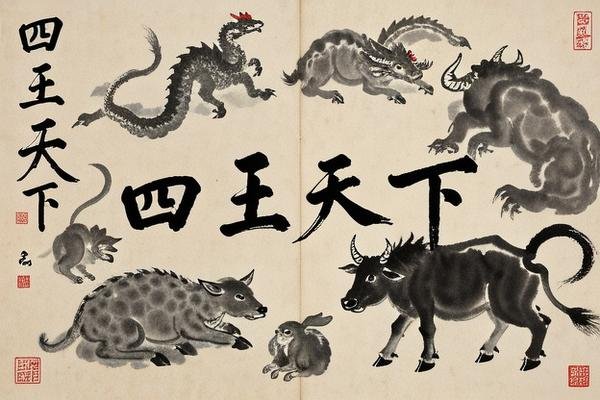 四王天下
四王天下